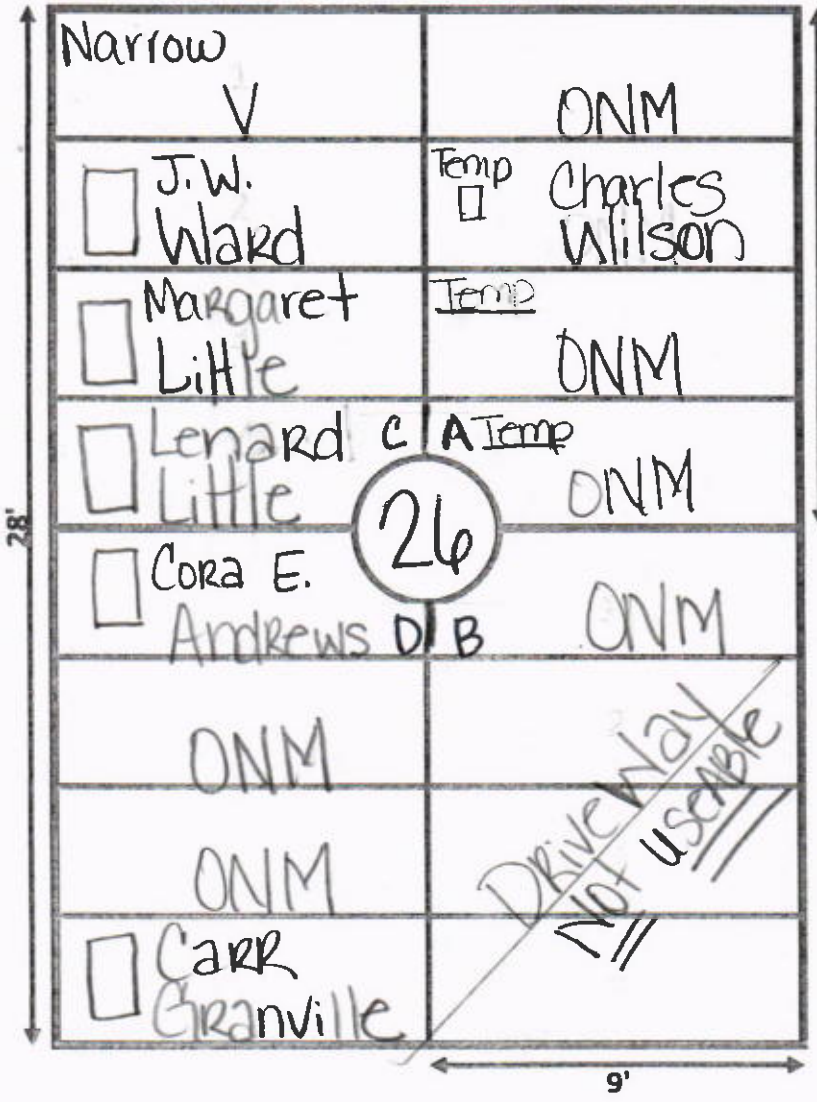 Narrow
V
ONM
J.W.
Ward
Temp
Charles
Wilson
Margaret
Little
Temp
ONM
Lenard
Little
C
A
Temp
ONM
26
Cora E.
Andrews
D
B
ONM
ONM
Drive Way
Not useable
ONM
Carr
Granville
28'
9'